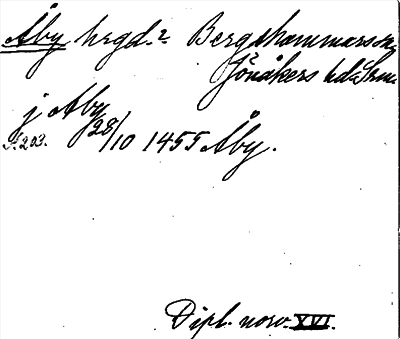 Åby hrgd.? Bergshammars sn,
Jönåkers hd. Srm.
j Aby
28/10 1455 Åby.
s. 203.
Dipl. norv. XVI.